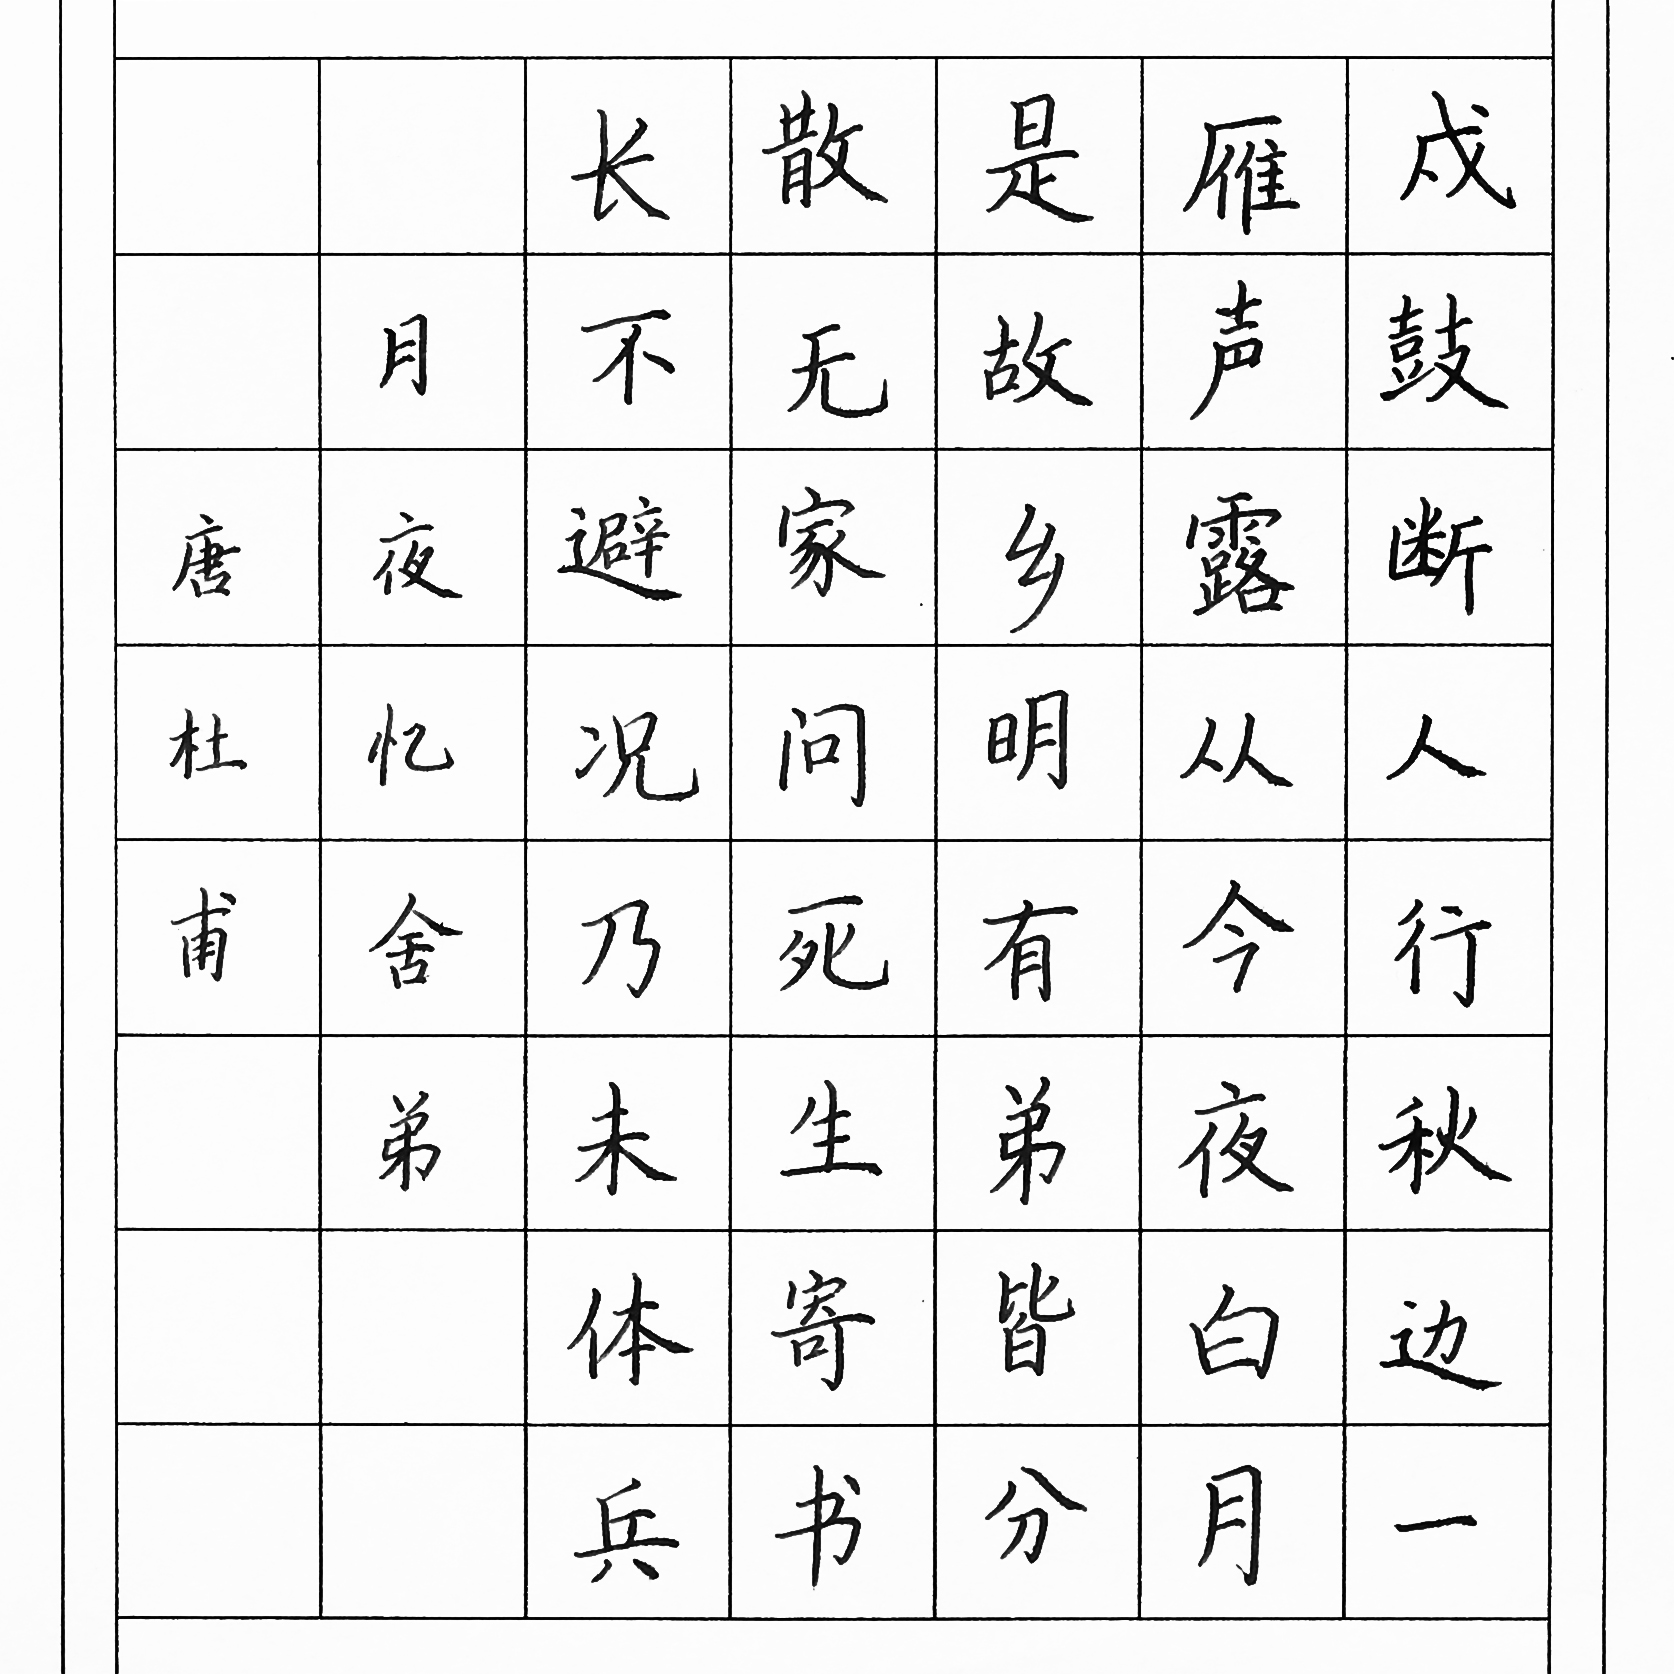 戍鼓断人行秋边一
雁声露从今夜白月
是故乡明有弟皆分
散无家问死生寄书
长不避况乃未体兵
月夜忆舍弟
唐杜甫